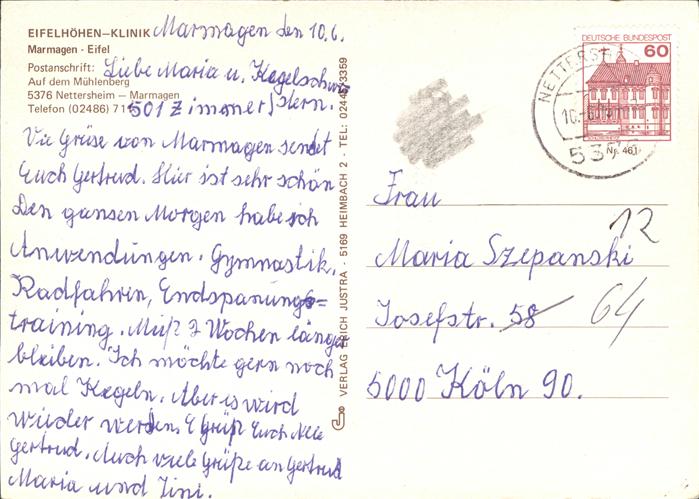 EIFELHÖHEN-KLINIK
Marmagen - Eifel
Postanschrift:
Auf dem Mühlenberg
5376 Nettersheim - Marmagen
Telefon (02486) 71
Marmagen den 10.6.
Liebe Maria u. Kegelschwestern.
501 Zimmer
Vie Grüse von Marmagen sendet
Euch Gertrud. Hier ist sehr schön
Den gansen Morgen habe ich
Anwendungen. Gymnastik,
Radfahrin, Endspanungs=
training. Muß 2 Wochen länger
bleiben. Ich möchte gern noch
mal Kegeln. Aber es wird
wieder werden. Grüß Euch Alle
Gertrud. Auch viele Grüße an Gertrud
Maria und Tini.
VERLAG ERICH JUSTRA · 5169 HEIMBACH 2 - TEL: 02446/3359
DEUTSCHE BUNDESPOST
60
NETTERSH
10.-6
5376
Nr. 461
Frau
Maria Szepanski
12
Josefstr. 58 64
5000 Köln 90.